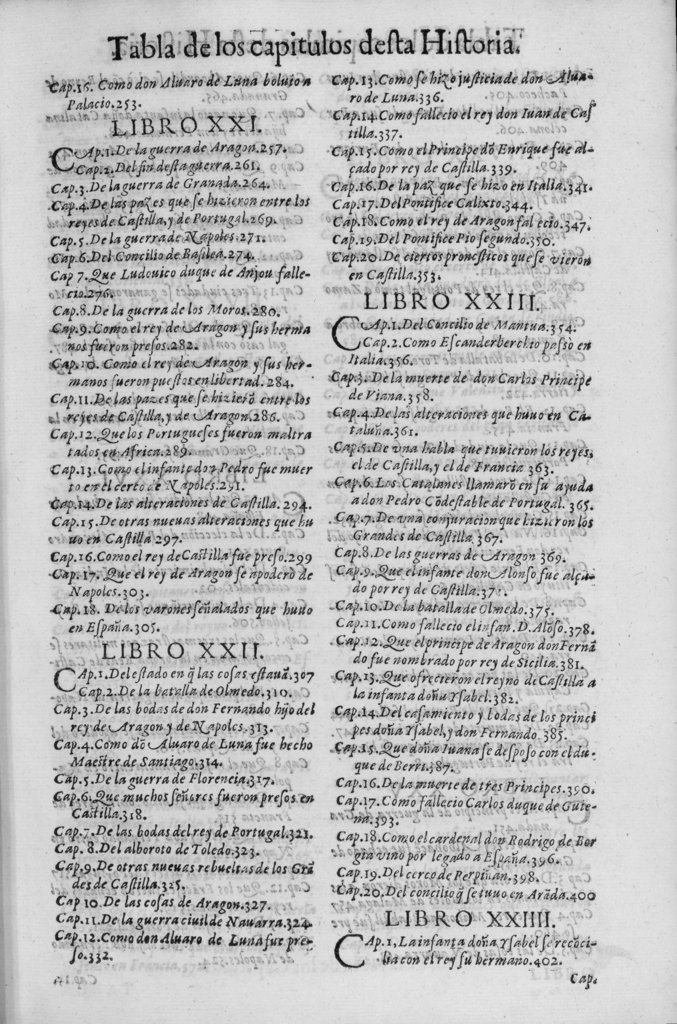 Tabla de los capitulos desta Historia.
Cap.16. Como don Aluaro de Luna boluio a
Palacio.253.
LIBRO XXI.
CAp.1.De la guerra de Aragon.257.
Cap.2.Del fin desta guerra.261.
Cap.3.De la guerra de Granada.264.
Cap.4.De las pazes que se hizieron entre los
reyes de Castilla,y de Portugal.269.
Cap.5.De la guerra de Napoles.271.
Cap.6.Del Concilio de Basilea.274.
Cap 7.Que Ludouico duque de Anjou falle-
cio.276.
Cap.8.De la guerra de los Moros.280.
Cap.9.Como el rey de Aragon y sus herma
nos fueron presos.282.
Cap.10. Como el rey de Aragon y sus her-
manos fueron puestos en libertad. 284.
Cap.11.De las pazes que se hizierō entre los
reyes de Castilla,y de Aragon.286.
Cap.12.Que los Portugueses fueron maltra
tados en Africa.289.
Cap.13.Como el infante don Pedro fue muer
to en el cerco de Napoles.291.
Cap.14.De las alteraciones de Castilla. 294.
Cap.15.De otras nueuas alteraciones que hu
uo en Castilla 297.
Cap.16.Como el rey de Castilla fue preso.299
Cap.17. Que el rey de Aragon se apoderò de
Napoles.303.
Cap.18. De los varones señalados que huuo
en España.305.
LIBRO XXII.
CAp.1.Del estado en q̃ las cosas estauā.307
Cap.2.De la batalla de Olmedo.310.
Cap.3.De las bodas de don Fernando hijo del
rey de Aragon y de Napoles.313.
Cap.4.Como dō Aluaro de Luna fue hecho
Maestre de Santiago.314.
Cap.5.De la guerra de Florencia.317.
Cap.6.Que muchos señores fueron presos en
Castilla.318.
Cap.7.De las bodas del rey de Portugal.321.
Cap. 8.Del alboroto de Toledo.323.
Cap.9.De otras nueuas rebueltas de los Grā
des de Castilla.325.
Cap 10.De las cosas de Aragon.327.
Cap.11.De la guerra ciuil de Nauarra.324
Cap.12.Como don Aluaro de Luna fue pre-
so.332.
Cap.13.Como se hizo justicia de don Alua-
ro de Luna.336.
Cap.14.Como fallecio el rey don Iuan de Cas
tilla.337.
Cap.15.Como el Principe dō Enrique fue al-
çado por rey de Castilla.339.
Cap.16.De la paz que se hizo en Italia.341.
Cap.17.Del Pontifice Calixto.344.
Cap.18.Como el rey de Aragon fallecio.347.
Cap.19.Del Pontifice Pio segundo.350.
Cap.20.De ciertos pronosticos que se vieron
en Castilla.353.
LIBRO XXIII.
CAp.1.Del Concilio de Mantua.354.
Cap.2.Como Escanderbercho passò en
Italia.356.
Cap.3.De la muerte de don Carlos Principe
de Viana.358.
Cap.4.De las alteraciones que huuo en Ca-
taluña.361.
Cap.5.De vna habla que tuuieron los reyes,
el de Castilla,y el de Francia 363.
Cap.6.Los Catalanes llamarō en su ayuda
a don Pedro Cōdestable de Portugal. 365.
Cap.7.De vna conjuracion que hizieron los
Grandes de Castilla.367.
Cap.8.De las guerras de Aragon 369.
Cap.9.Que el infante don Alonso fue alça-
do por rey de Castilla.371.
Cap.10.De la batalla de Olmedo.375.
Cap.11.Como fallecio el infan.D.Alōso.378.
Cap.12.Que el principe de Aragon don Fernā
do fue nombrado por rey de Sicilia.381.
Cap.13.Que ofrecieron el reyno de Castilla a
la infanta doña Ysabel.382.
Cap.14.Del casamiento y bodas de los princi
pes doña Ysabel,y don Fernando.385.
Cap.15.Que doña Iuana se desposo con el du-
que de Berri.387.
Cap.16.De la muerte de tres Principes.390.
Cap.17.Como fallecio Carlos duque de Guie-
na.393.
Cap.18.Como el cardenal don Rodrigo de Bor
gia vino por legado a España.396.
Cap.19.Del cerco de Perpiñan.398.
Cap.20.Del concilio q̃ se tuuo en Arāda.400
LIBRO XXIIII.
CAp.1,La infanta doña Ysabel se recōci-
lia con el rey su hermano.402.
Cap.